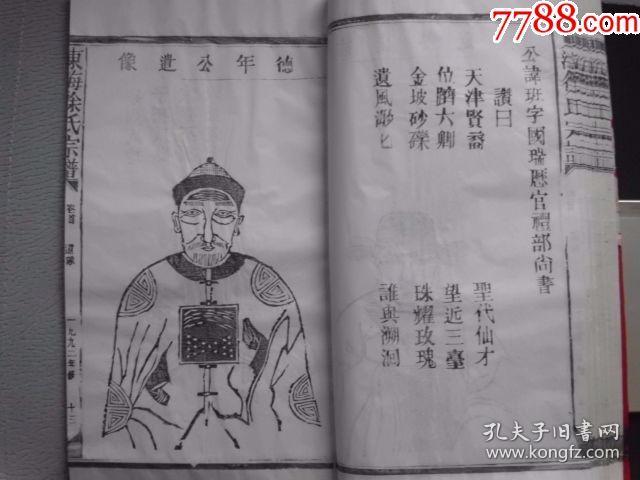 7788.com
公諱班字國瑞歷官禮部尚書
讃曰
天津賢裔 聖代仙才
位躋大卿 望近三臺
金坡砂礫 珠耀玫瑰
遺風渺匕 誰與溯洄
德年公遺像
東海徐氏宗譜
卷首
遺像
一九九二年修
十三
孔夫子旧书网
www.kongfz.com